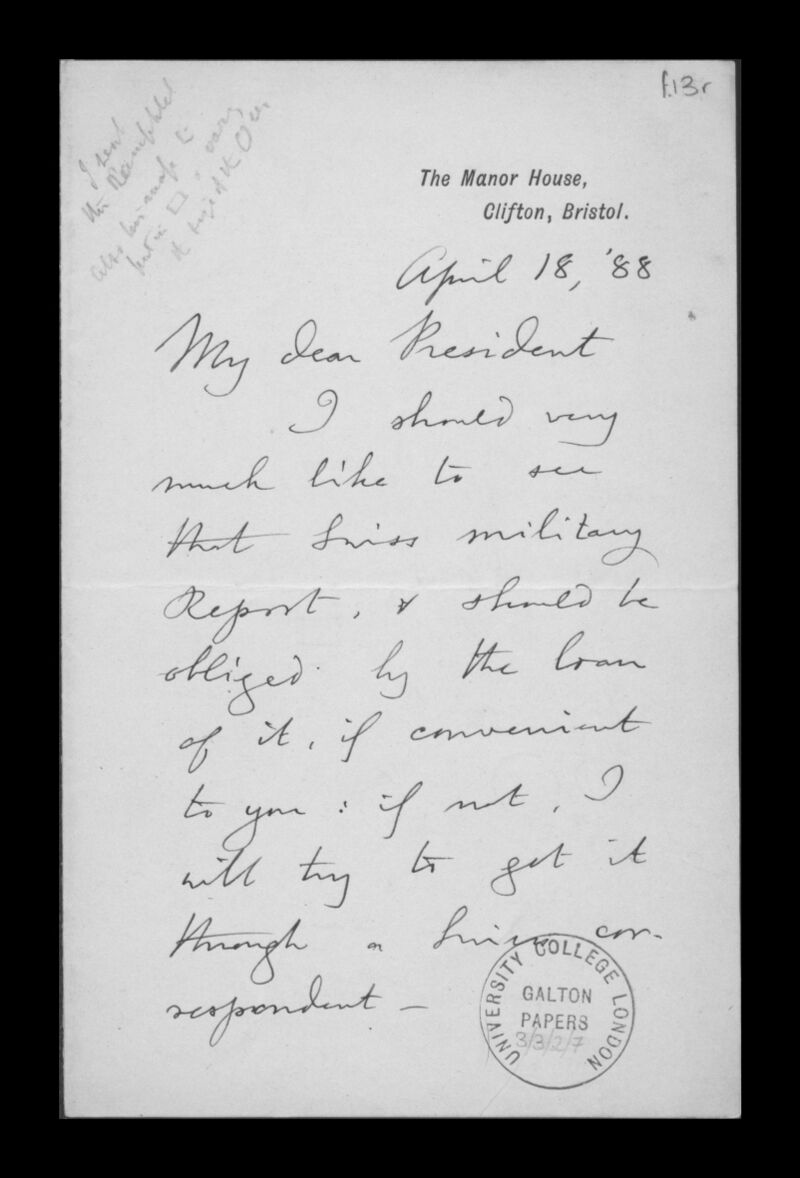 f.13r
I sent
the Pamphlet
also his map to
but in □
The Manor House,
Clifton, Bristol.
April 18, '88
My dear President
I should very
much like to see
that Swiss military
Report, & should be
obliged by the loan
of it, if convenient
to you : if not, I
will try to get it
through a Swiss cor-
respondent -
UNIVERSITY COLLEGE LONDON
GALTON
PAPERS
3/3/2/7